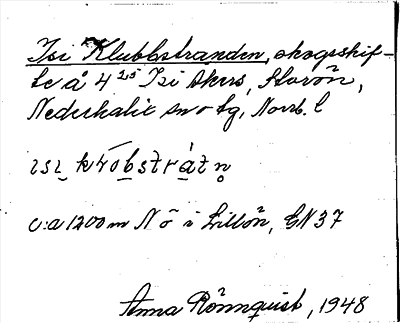 Isi Klubbstranden, skogsskif-
te å 4²⁵ Isi skers, Storön,
Nederkalix sn o tg, Norrb. l
ɩsɩ. kłobstrátn̥
c:a 1200 m N ö i Lillön, EN 37
Anna Rönnquist, 1948